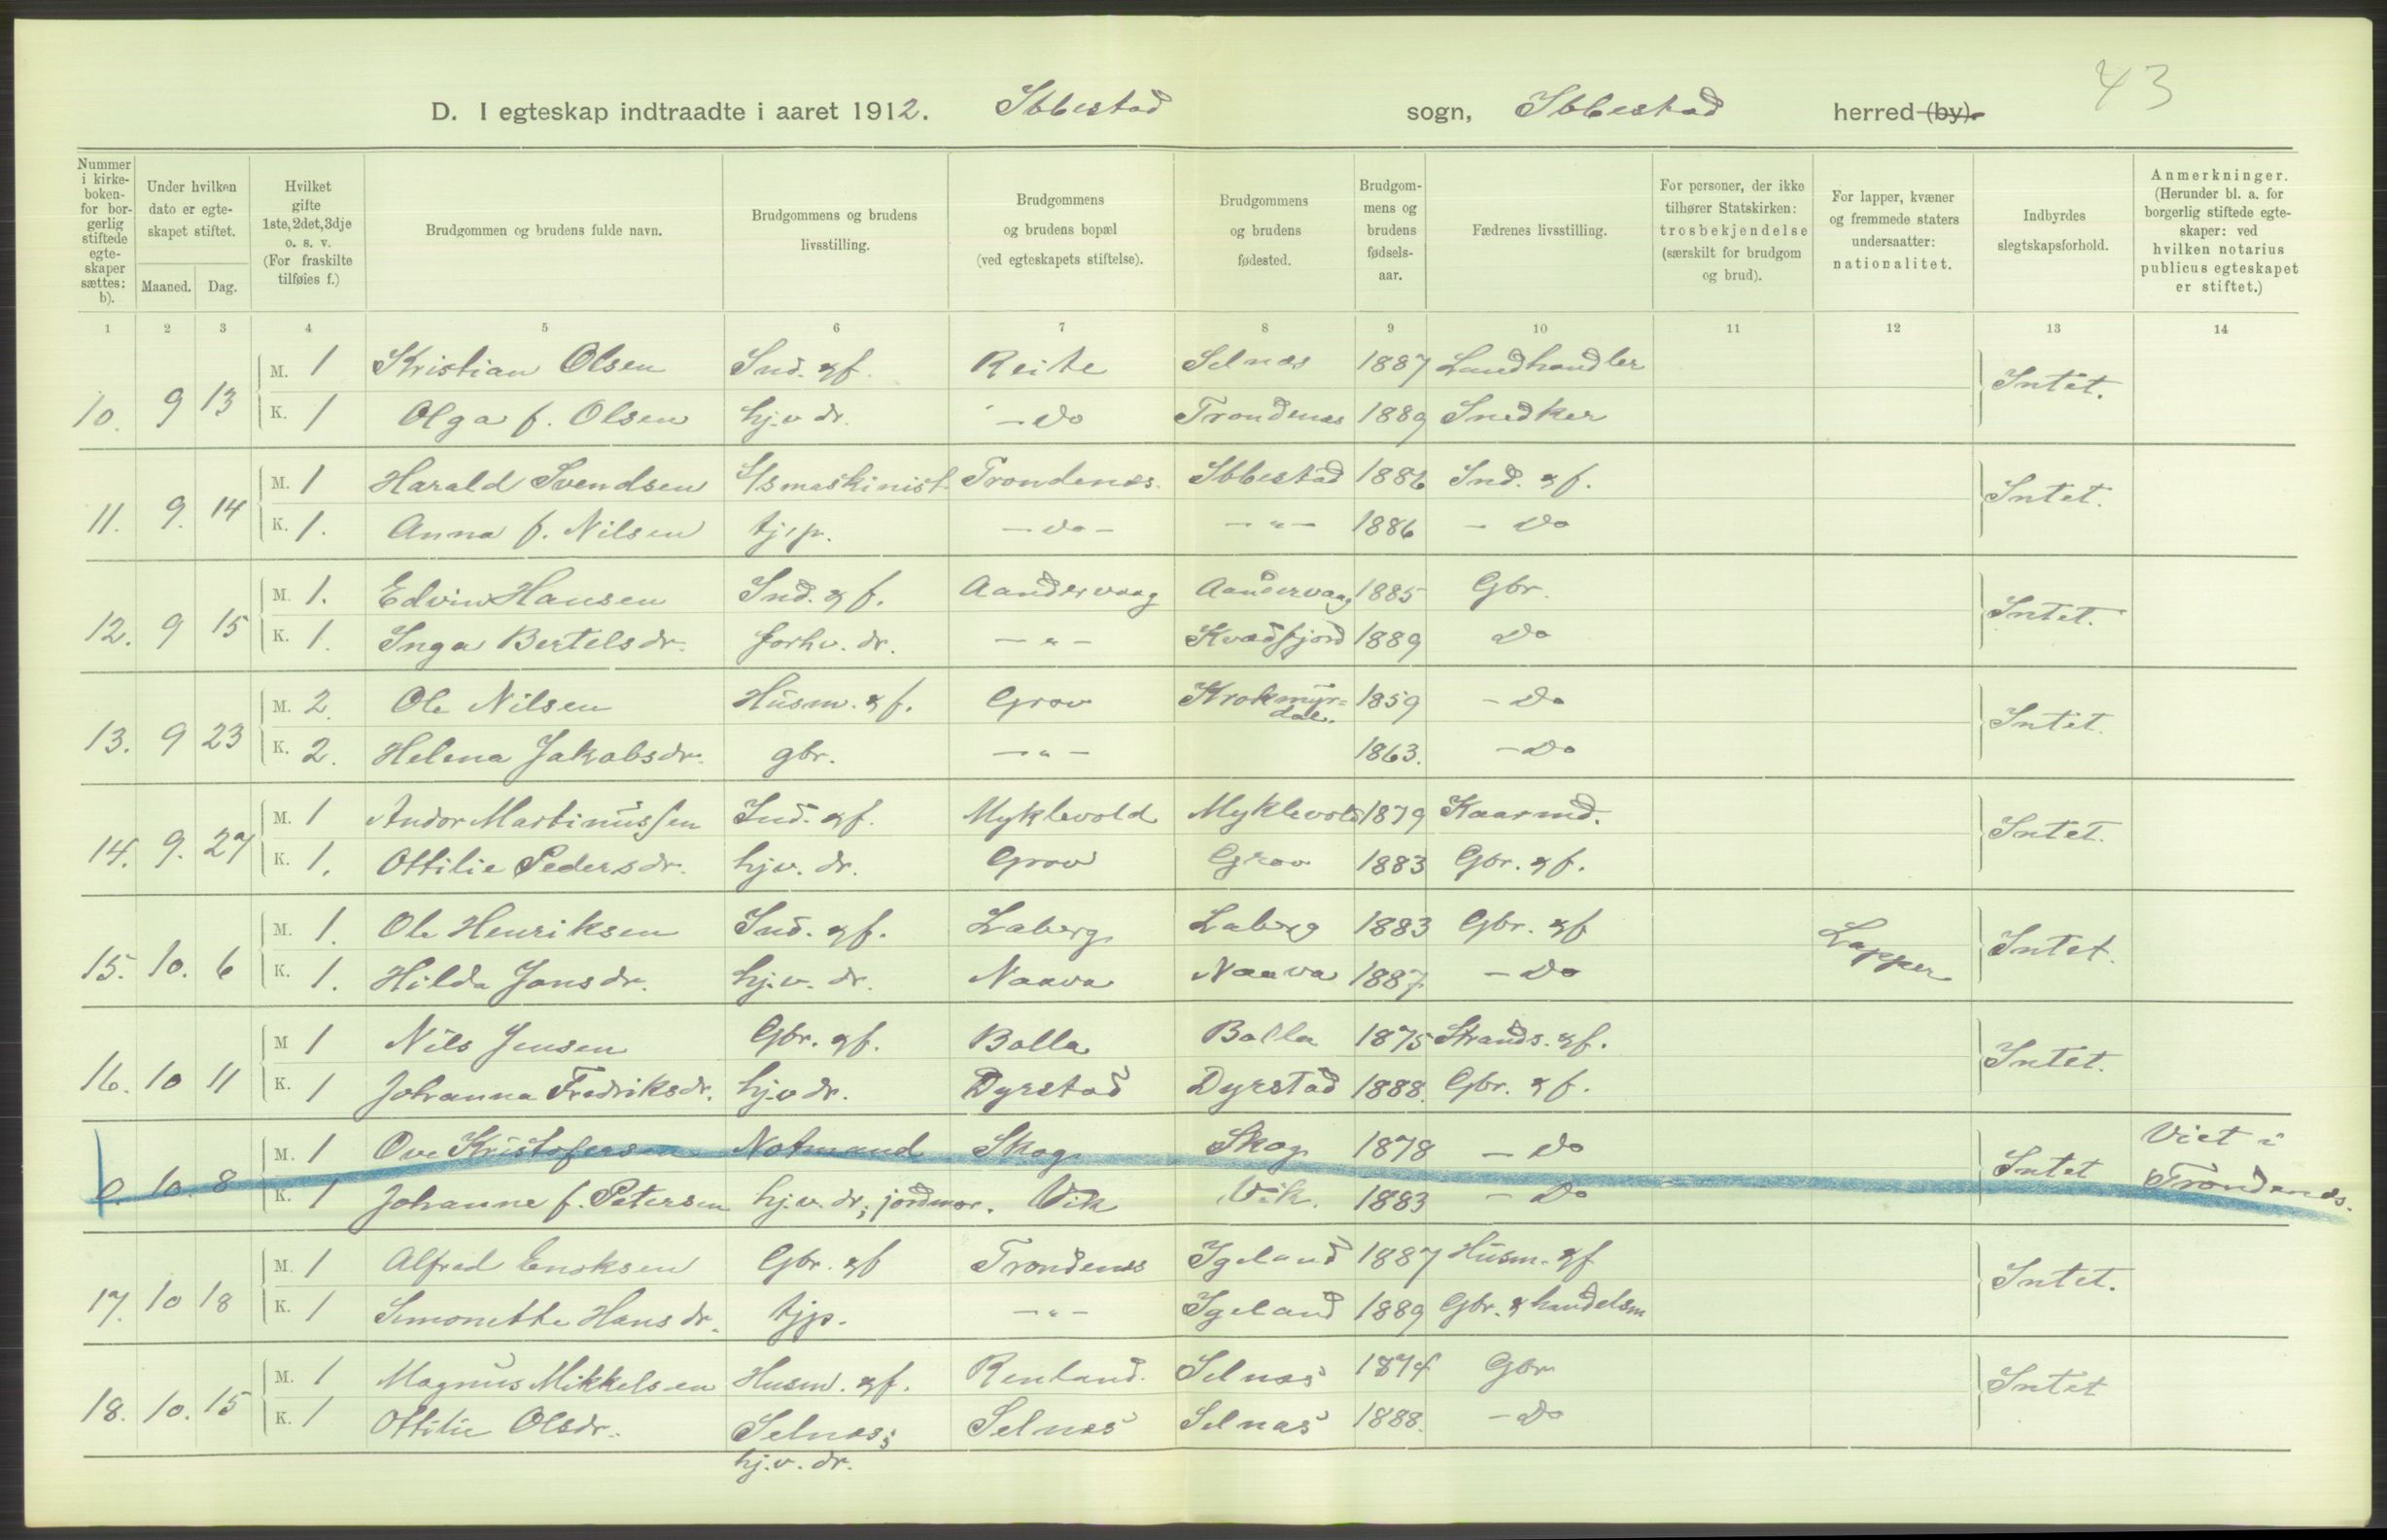 43
D. I egteskap indtraadte i aaret 1912. Ibbestad sogn, Ibbestad herred (by).
Nummer i kirkeboken- for borgerlig stiftede egteskaper sættes: b).
Under hvilken dato er egteskapet stiftet.
Maaned. Dag.
Hvilket gifte 1ste, 2det, 3dje o. s. v. (For fraskilte tilføies f.)
Brudgommen og brudens fulde navn.
Brudgommens og brudens livsstilling.
Brudgommens og brudens bopæl (ved egteskapets stiftelse).
Brudgommens og brudens fødested.
Brudgommens og brudens fødselsaar.
Fædrenes livsstilling.
For personer, der ikke tilhører Statskirken: trosbekjendelse (særskilt for brudgom og brud).
For lapper, kvæner og fremmede staters undersaatter: nationalitet.
Indbyrdes slegtskapsforhold.
Anmerkninger. (Herunder bl. a. for borgerlig stiftede egteskaper: ved hvilken notarius publicus egteskapet er stiftet.)
1 2 3 4 5 6 7 8 9 10 11 12 13 14
10. 9 13 M. 1 Kristian Olsen Ind. & f. Reite Selnæs 1887 Landhandler Intet.
K. 1 Olga f. Olsen hj.v dr. - Do Trondenæs 1889 Snedker
11. 9. 14 M. 1 Harald Svendsen S/S maskinist Trondenæs. Ibbestad 1886 Ind. & f. Intet.
K. 1. Anna f. Nilsen tjp. - do - - " - 1886 - Do
12. 9 15 M. 1. Edvin Hansen Ind. & f. Aandervaag Aandervaag 1885 Gbr. Intet.
K. 1. Inga Bertelsdr. forhv. dr. - " - Kvædfjord 1889 Do
13. 9 23 M. 2. Ole Nilsen Husm. & f. Grov Krokmyr=dal. 1859 - Do Intet.
K. 2. Helena Jakobsdr. gbr. - " - 1863. - Do
14. 9. 27 M. 1 Andor Martinussen Ind. & f. Myklevold Myklevold 1879 Kaarmd. Intet.
K. 1. Ottilie Pedersdr. hjv. dr. Grov Grov 1883 Gbr. & f.
15. 10. 6 M. 1. Ole Henriksen Ind. & f. Laberg Laberg 1883 Gbr. & f Lapper Intet.
K. 1. Hilda Jonsdr. hj.v. dr. Naava Naava 1887 - Do
16. 10 11 M 1 Nils Jensen Gbr. & f. Bolla Bolla 1875 Strands. & f. Intet.
K. 1 Johanna Fredriksdr. hj.v dr. Dyrstad Dyrstad 1888. Gbr. & f.
0. 10. 8 M. 1 Ove Kristofersen Notmand Skog Skog 1878 - Do Intet Viet i
K. 1 Johanne f. Petersen hj.v. dr.; jordmor. Vik Vik. 1883 - Do Trondenæs.
17. 10 18 M. 1 Alfred Enoksen Gbr. & f Trondenæs Igeland 1887 Husm. & f Intet.
K. 1 Simonette Hansdr. tjp. - " - Igeland 1889 Gbr. & handelsm
18. 10. 15 M. 1 Magnus Mikkelsen Husm. & f. Renland. Selnæs 1874 Gbr Intet
K. 1 Ottilie Olsdr. Selnæs; Selnæs Selnæs 1888. - Do
hj.v. dr.